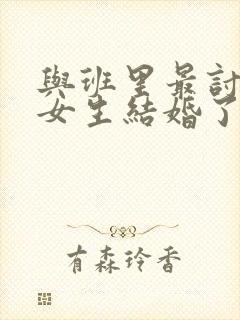 與班里最討
女生結婚了
有森玲香